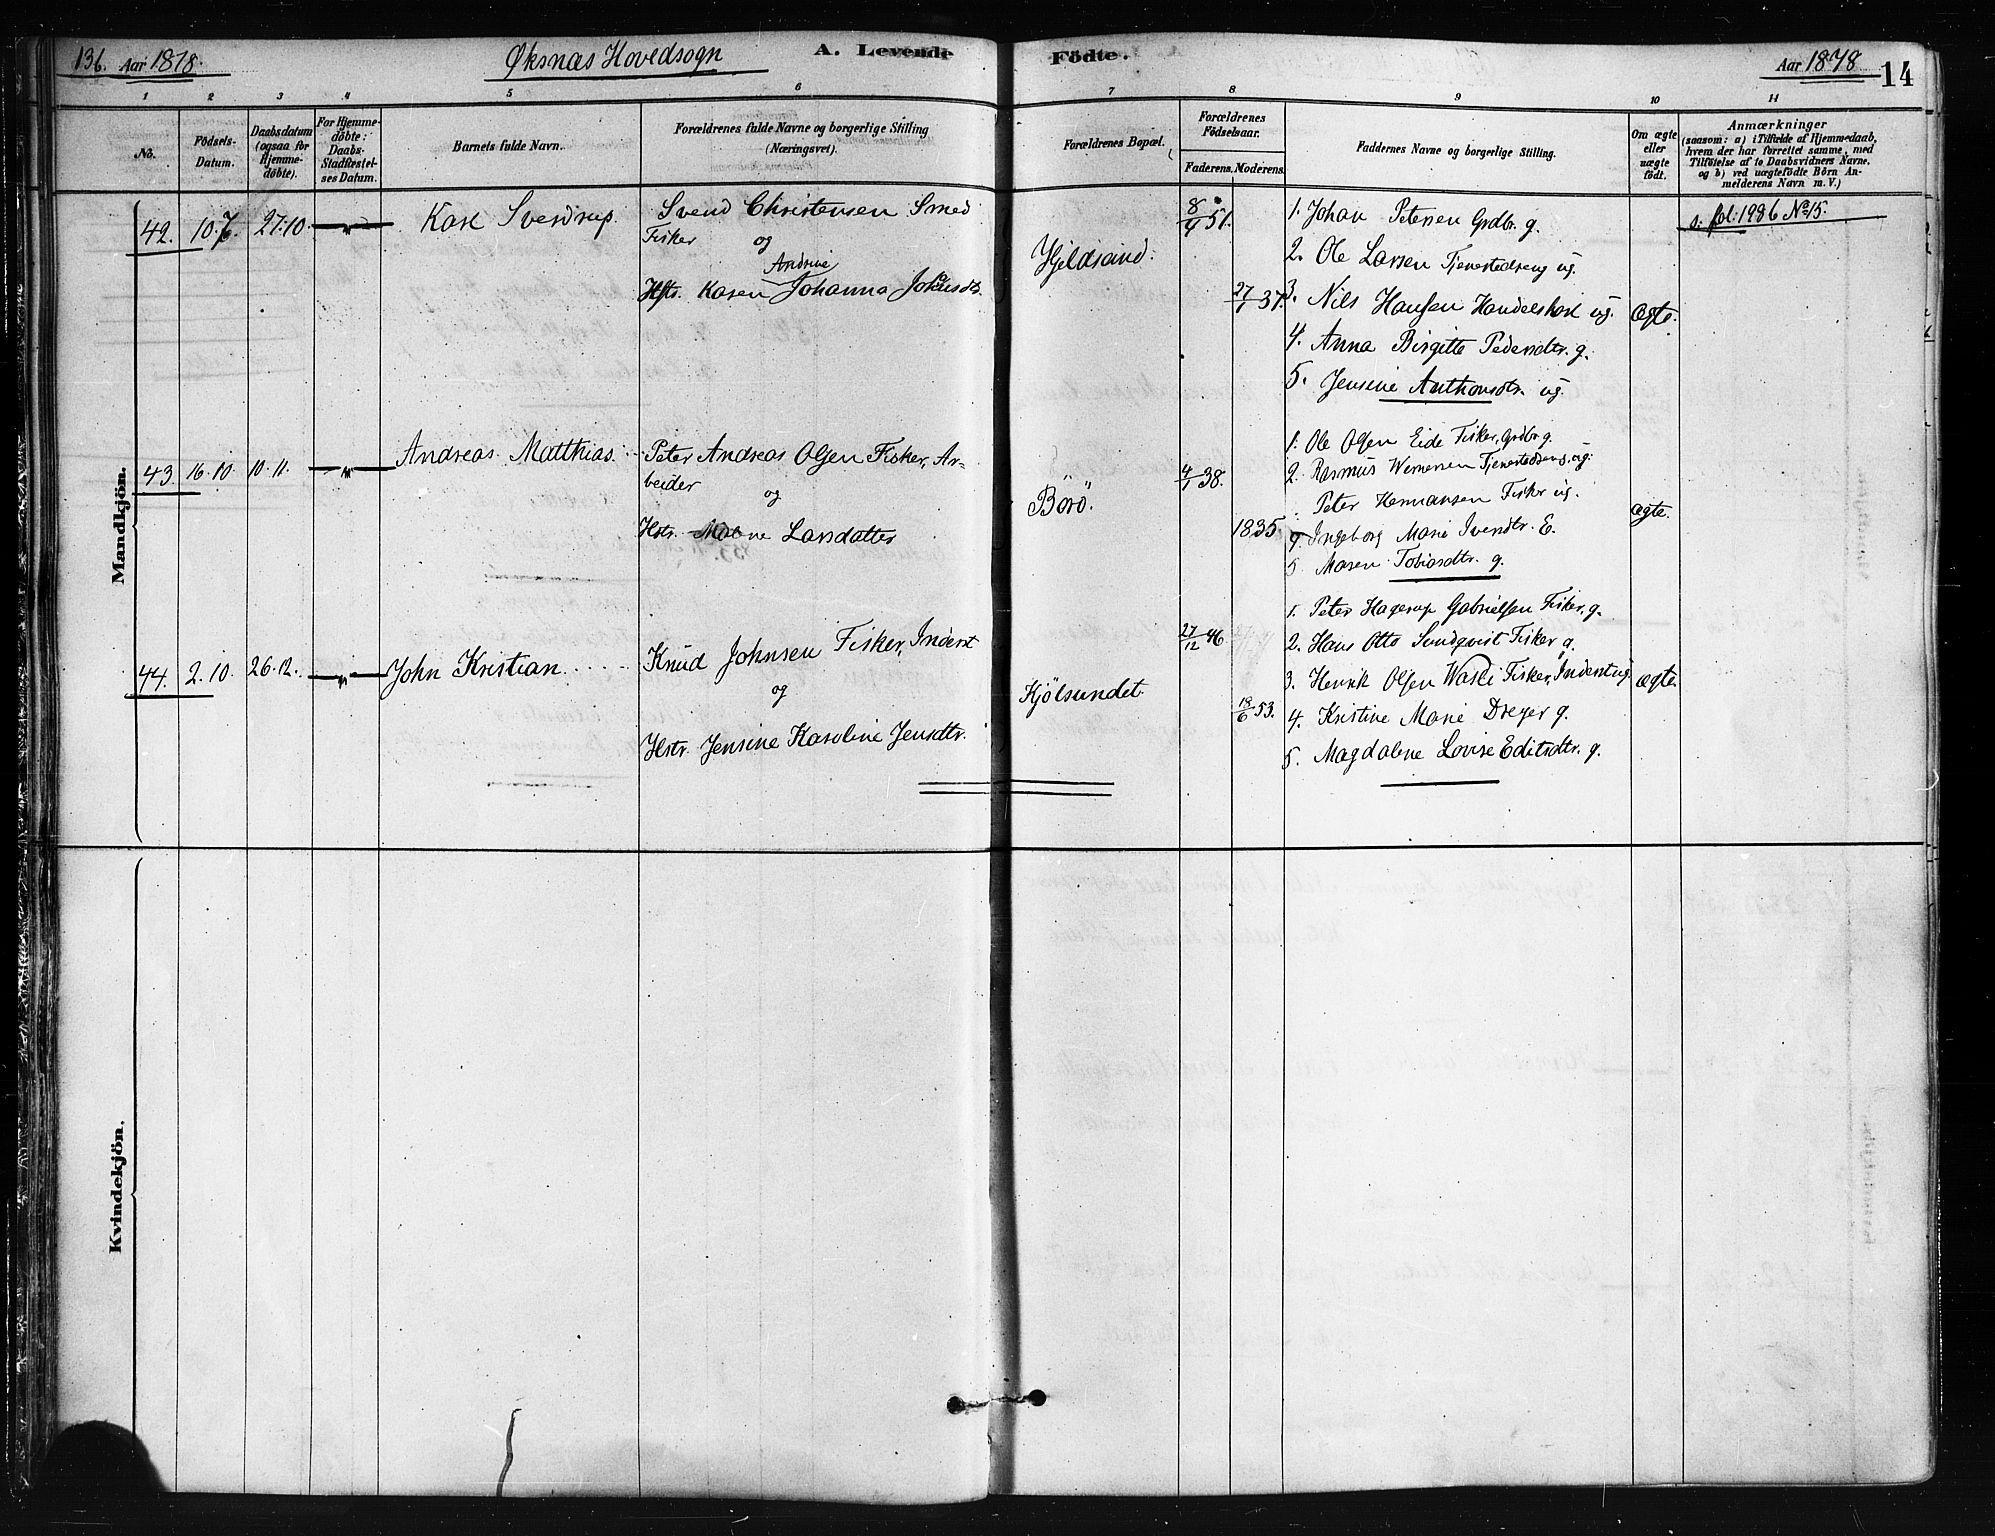 136. Aar 1878. Øksnæs Hovedsogn A. Levende Födte. Aar 1878 14
1 2 3 4 5 6 7 8 9 10 11
No.
Födsels-Datum.
Daabsdatum (ogsaa for Hjemme-döbte).
For Hjemme-döbte: Daabs-Stadfæstel-ses Datum.
Barnets fulde Navn.
Forældrenes fulde Navne og borgerlige Stilling
(Næringsvei).
Forældrenes Bopæl.
Forældrenes Födselsaar.
Faderens. Moderens.
Faddernes Navne og borgerlige Stilling.
Om ægte eller uægte födt.
Anmærkninger
(saasom: a) i Tilfælde af Hjemmedaab,
hvem der har forrettet samme, med
Tilföielse af to Daabsvidners Navne,
og b) ved uægtefödte Börn An-
melderens Navn m. V.)
Mandkjön.
42. 10.7. 27.10. Karl Sverdrup. Svend Christensen Smed
Fisker og
Andrine
Hstr. Karen Johanna
Hjeldsand.
8/9 51.
27/7 37.
1. Johan Petersen Grdbr. g.
2. Ole Larsen Tjenestedreng ug.
3. Nils Hansen Handelskarl ug.
4. Anna Birgitte Pedersdtr. g.
5. Jensine Anthonsdtr. ug.
ægte.
s. fol. 1986 No 15.
43. 16.10. 10.11. Andreas Matthias. Peter Andreas Olsen Fisker, Ar-
beider
og
Hstr. Malene Larsdatter
Börö.
4/1 38.
1835.
1. Ole Olsen Eide Fisker, Grdbr. g.
2. Rasmus Wernersen Tjenestedreng, ug.
Peter Hermansen Fisker ug.
4. Ingeborg Marie Iversdtr. E.
5. Maren Tobiasdtr. g.
ægte.
44. 2.10. 26.12. John Kristian. Knud Johnsen Fisker, Inderst
og
Hstr. Jensine Karoline Jensdtr.
Kjölsundet.
27/12 46
18/6 53.
1. Peter Hagerup Gabrielsen Fisker, g.
2. Hans Otto Sundqvist Fisker g.
3. Henrik Olsen Fisker, Inderst ug.
4. Kristine Marie Dreyer g.
5. Magdalene Lovise Editsdtr. g.
ægte
Kvindekjön.